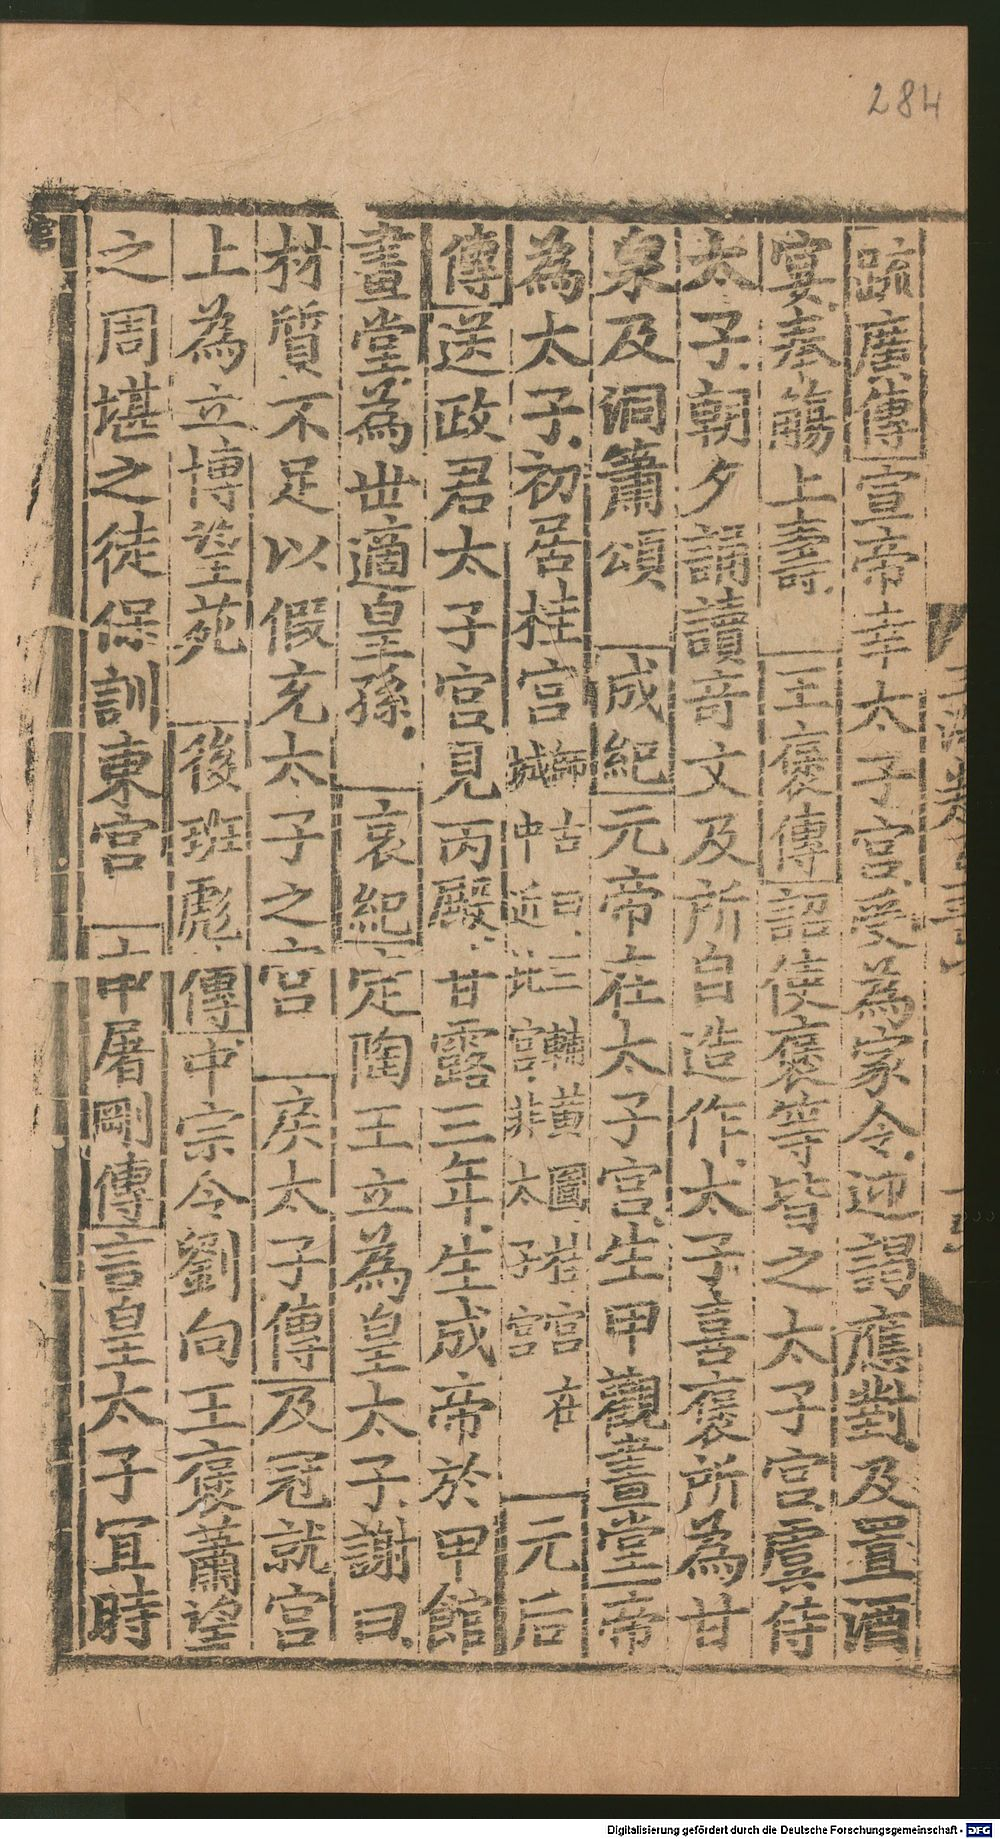 284
疏廣傳宣帝幸太子宮受為家令迎謁應對及置酒
宴奉觴上壽王褒傳詔使褒等皆之太子宮虞侍
太子朝夕誦讀奇文及所自造作太子喜褒所為甘
泉及洞簫頌成紀元帝在太子宮生甲觀畫堂帝
為太子初居桂宮師古曰三輔黃圖桂宮在城中近北宮非太子宮元后
傳送政君太子宮見丙殿甘露三年生成帝於甲館
畫堂為世適皇孫哀紀定陶王立為皇太子謝曰
材質不足以假充太子之宮戾太子傳及冠就宮
上為立博望苑後班彪傳中宗令劉向王褒蕭望
之周堪之徒保訓東宮申屠剛傳言皇太子宜時
宮
Digitalisierung gefördert durch die Deutsche Forschungsgemeinschaft - DFG